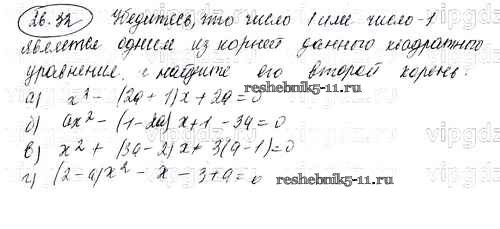 26.32 Убедитесь, что число 1 или число -1
является одним из корней данного квадратного
уравнения, и найдите его второй корень:
а) x² - (2a + 1)x + 2a = 0
reshebnik5-11.ru
б) ax² - (1-2a)x + 1 - 3a = 0
в) x² + (3a - 2)x + 3(a - 1) = 0
г) (2 - a)x² - x - 3 + a = 0
reshebnik5-11.ru